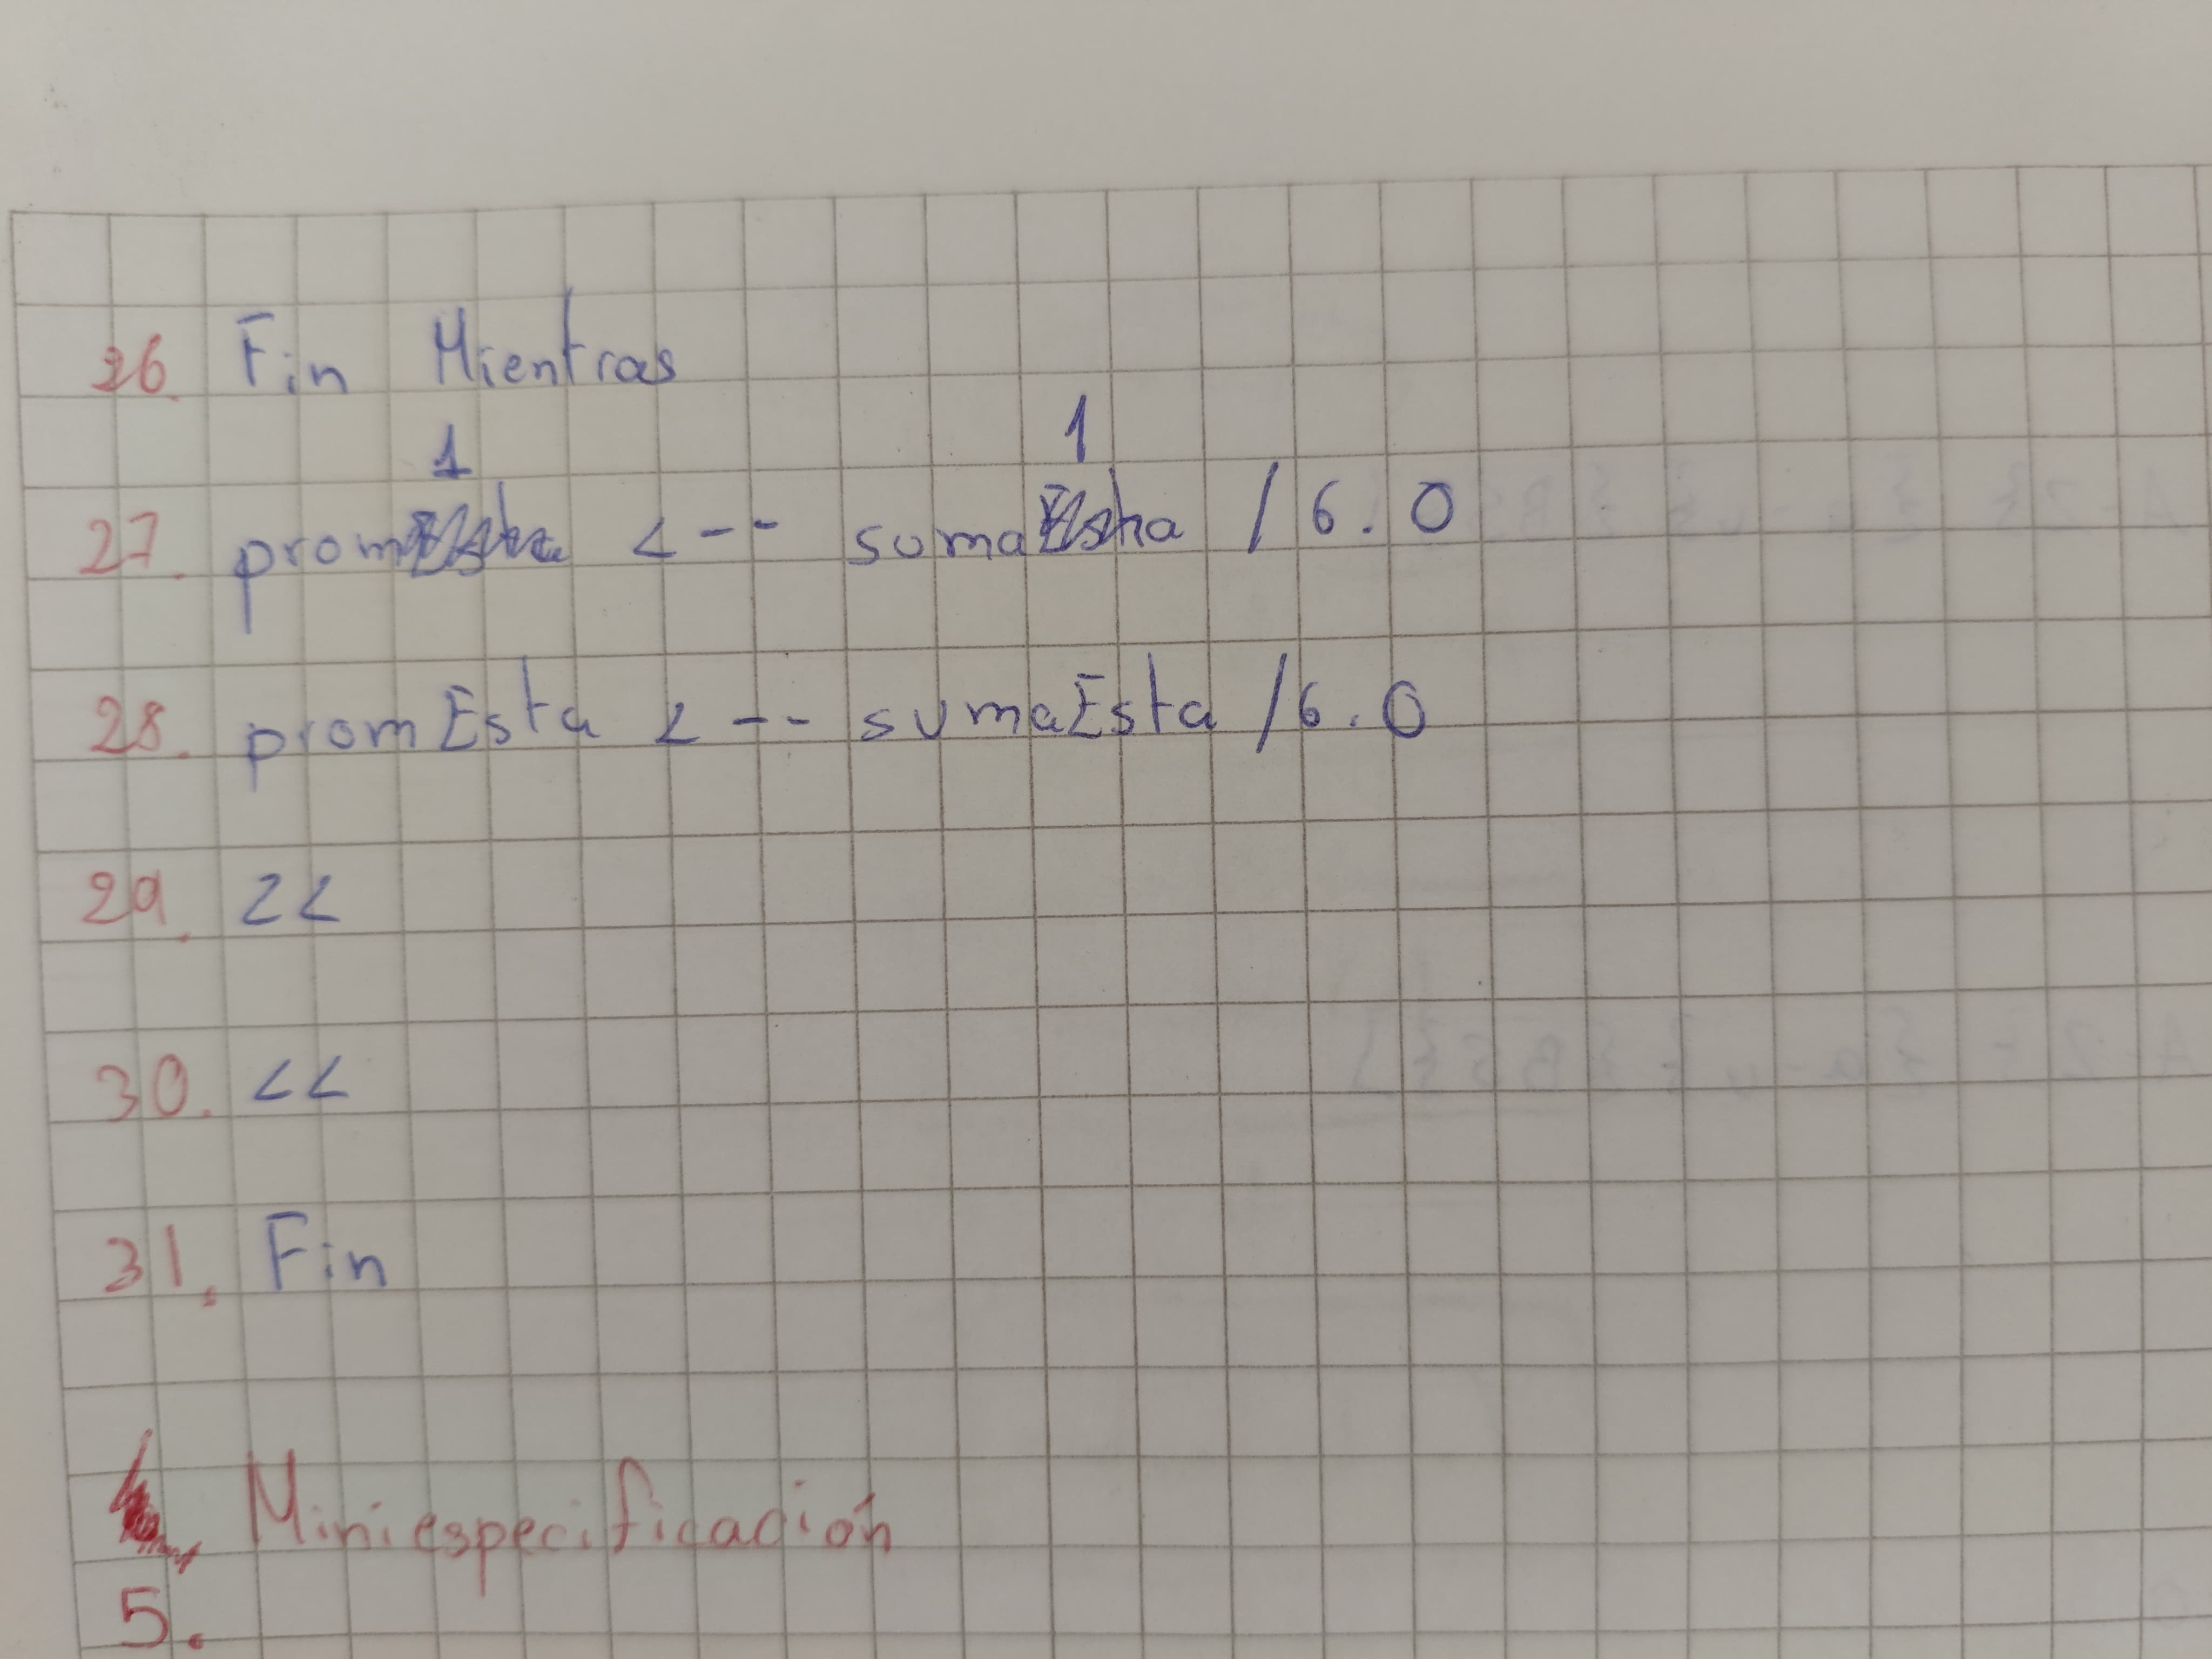 26. Fin Mientras
1 1
27. prom <-- suma / 6.0
28. promEsta <-- sumaEsta /6.0
29. <<
30. <<
31. Fin
Miniespecificación
5.